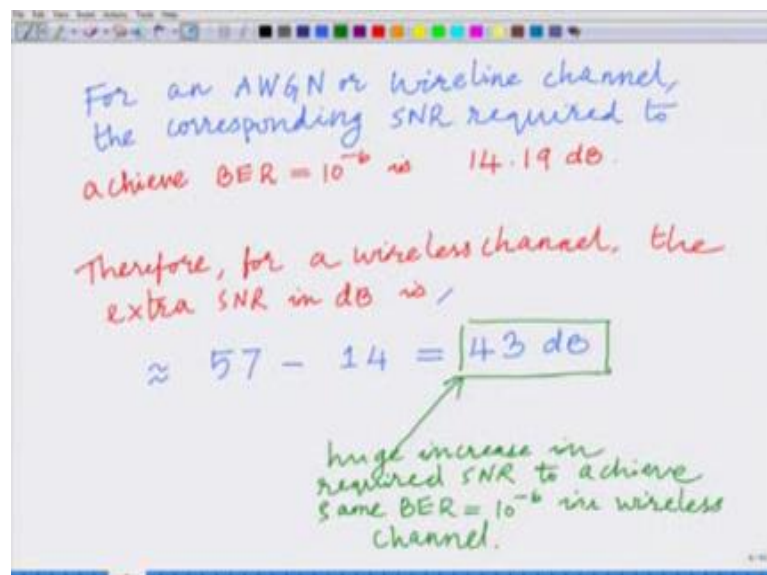 For an AWGN or wireline channel,
the corresponding SNR required to
achieve BER = 10⁻⁶ is 14.19 dB.
Therefore, for a wireless channel, the
extra SNR in dB is,
≈ 57 - 14 = 43 dB
huge increase in
required SNR to achieve
same BER = 10⁻⁶ in wireless
channel.